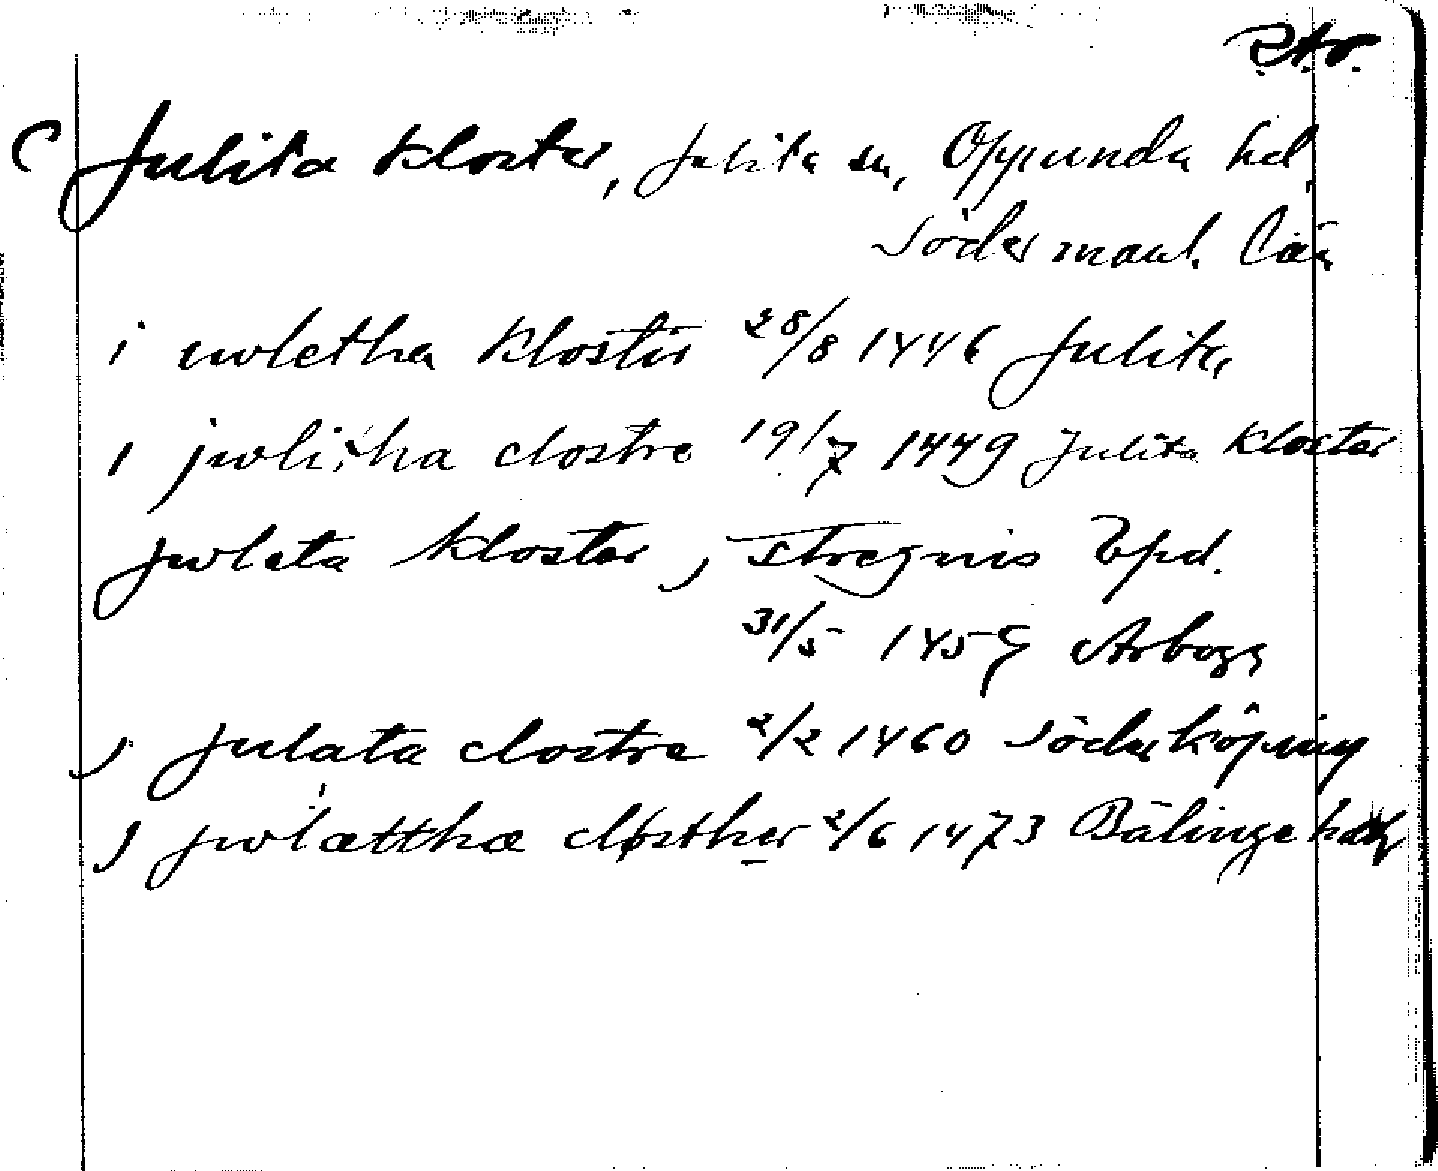 R.A.P.
Julita kloster, Julita sn, Oppunda hd,
Södermanl. län
i uvletha kloster 28/8 1446 Julita
i jwlitha clostre 19/7 1449 Julita kloster
jwleta kloster, j stregnis bpd.
31/5 1459 Arboga
j julata clostre 2/2 1460 Söderköping
j jwlættha closther 2/6 1473 Bälinge